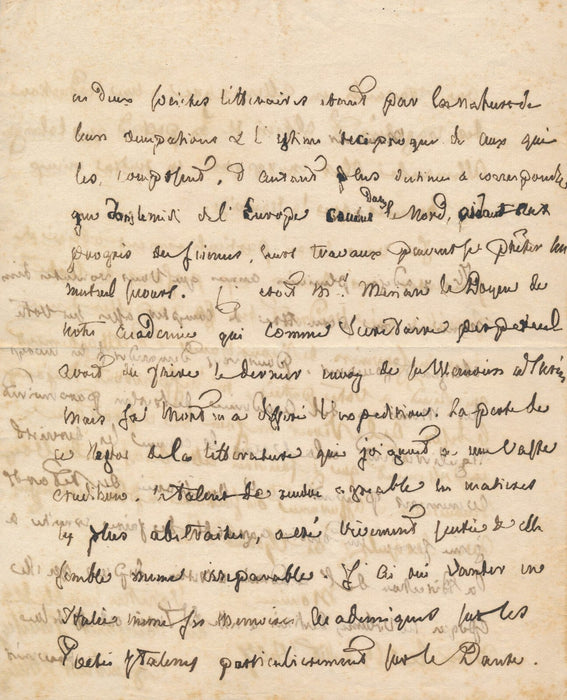 ces deux sociétés littéraires étant par la nature de
leurs occupations & l'estime réciproque de ceux qui
les composent, d'autant plus destinées à correspondre
que dans le midi de l'Europe comme dans le Nord, aux
progrès des sciences, leurs travaux peuvent se prêter un
mutuel secours. C'étoit Mr. Merian le Doyen de
notre académie qui comme Secrétaire perpétuel
avoit du faire le dernier envoy de ses Memoires à Turin,
mais sa Mort en a différé l'expédition. La perte de
ce Nestor de la littérature qui joignant à une vaste
érudition, le talent de rendre agréable les matières
les plus abstraites, a été vivement sentie & elle
semble meme irreparable. J'ai oui vanter en
Italie meme ses Memoires Academiques sur les
Poetes Italiens particulierement sur le Dante.